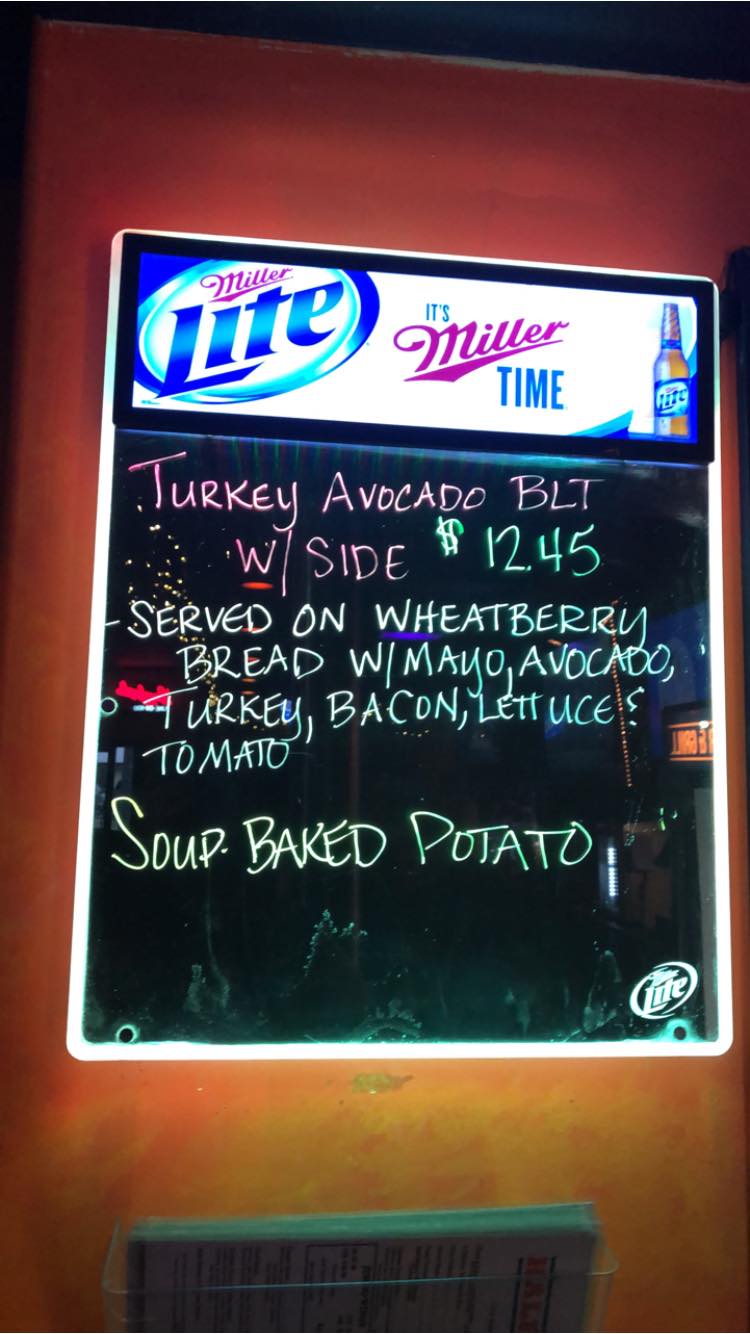 Miller
Lite
IT'S
Miller
TIME
Lite
TURKEY AVOCADO BLT
W/ SIDE $ 12.45
- SERVED ON WHEATBERRY
BREAD W/ MAYO, AVOCADO,
TURKEY, BACON, LETTUCE &
TOMATO
SOUP- BAKED POTATO
Lite